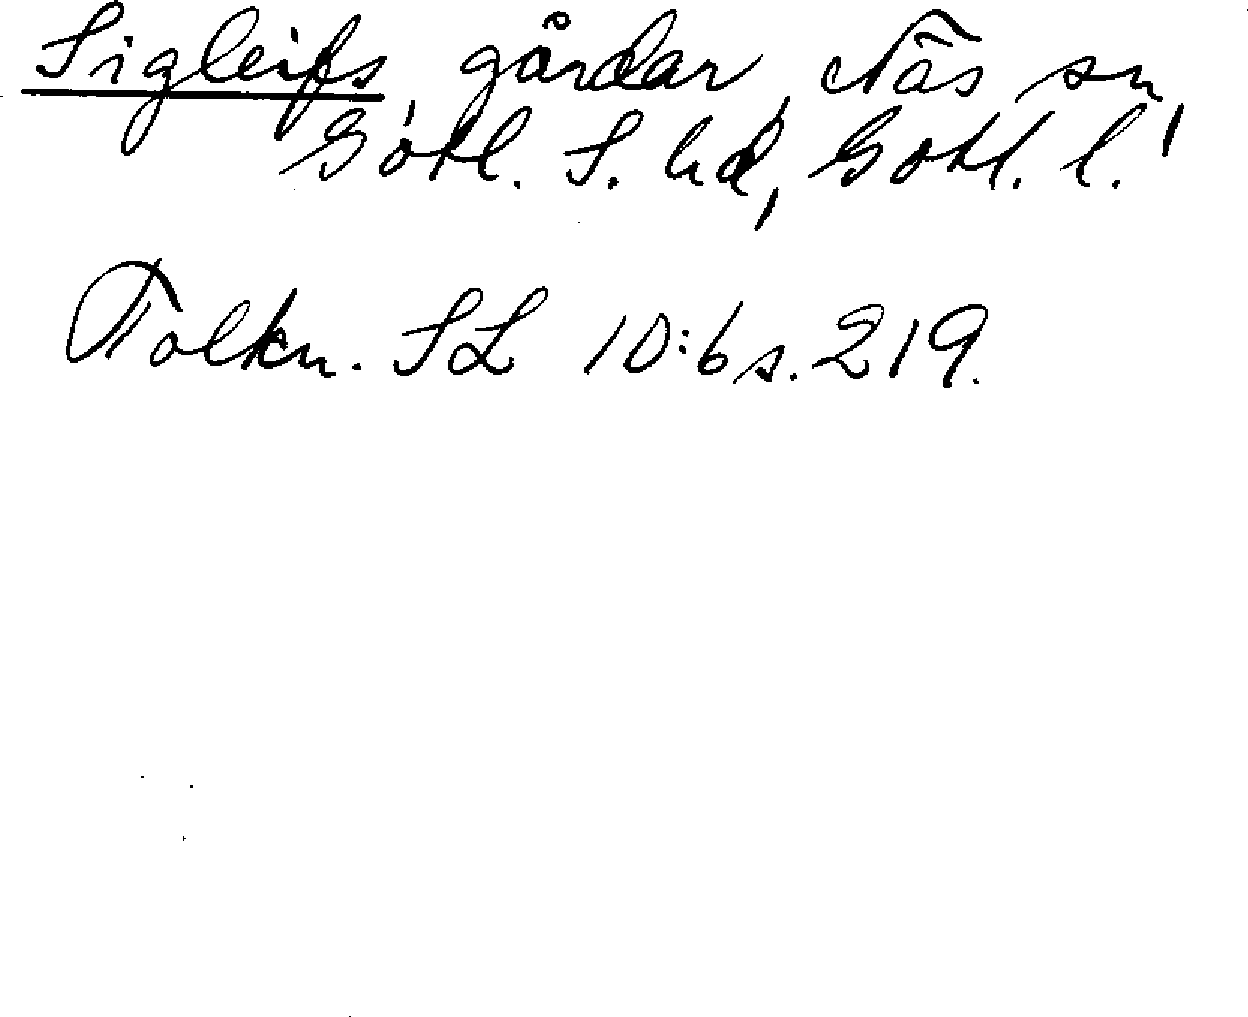 Sigleifs, gårdar, Näs sn,
Gotl. S. hd, Gotl. l.
Tolkn. SL 10:6 s. 219.